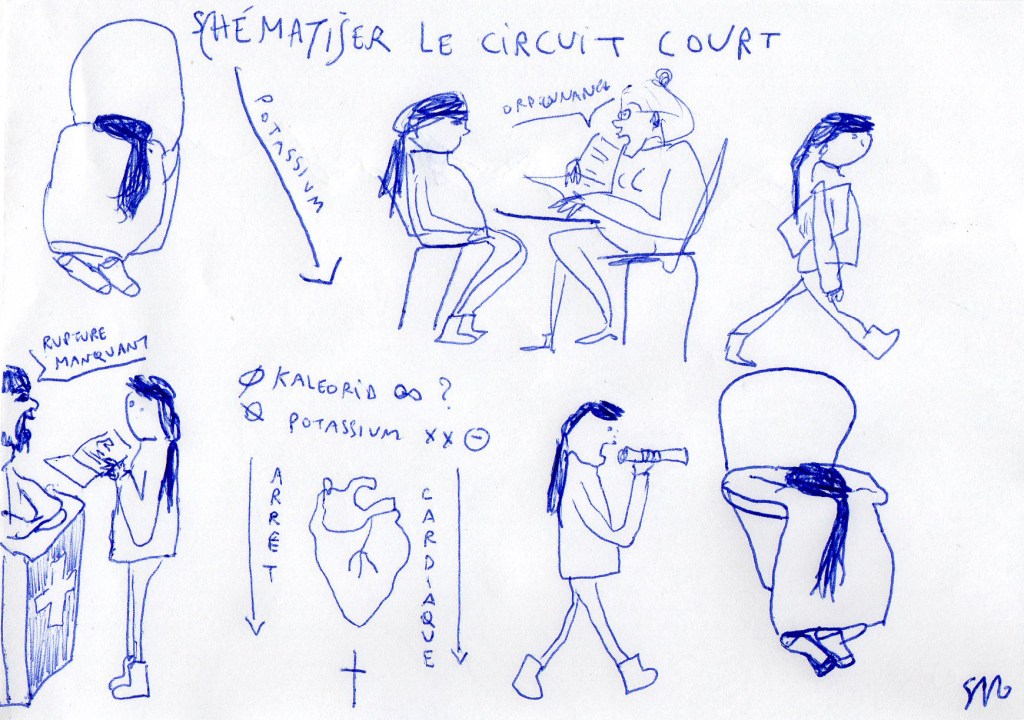 SCHÉMATISER LE CIRCUIT COURT
POTASSIUM
ORDONNANCE
RUPTURE
MANQUANT
Ø KALEORID ∞ ?
Ø POTASSIUM XX ⊖
ARRET
CARDIAQUE